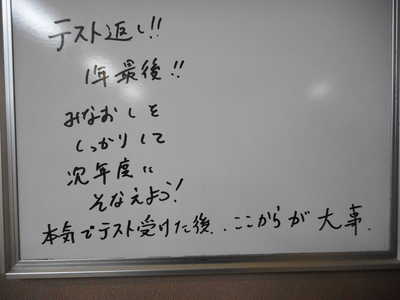 テスト返し!!
1年最後!!
みなおしを
しっかりして
次年度に
そなえよう!
本気でテスト受けた後..ここからが大事.